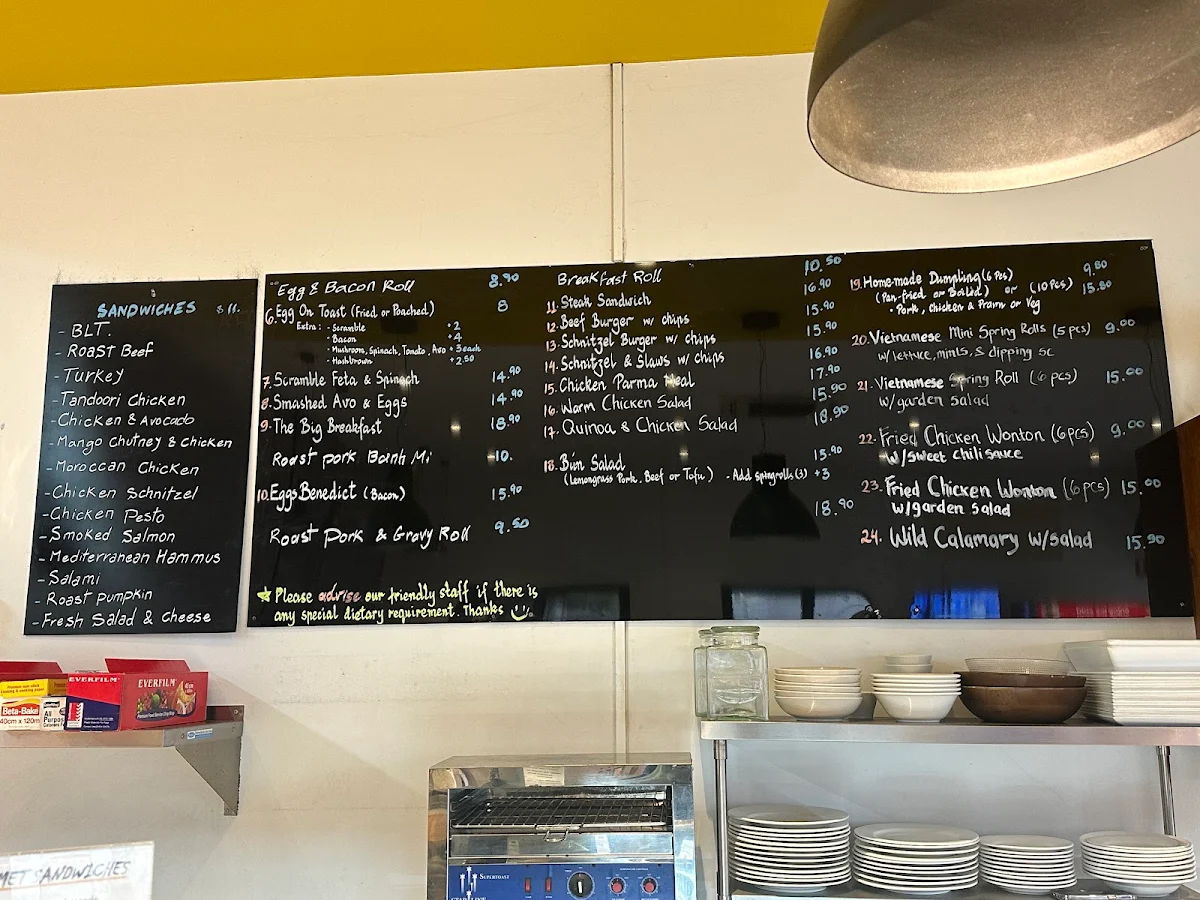 SANDWICHES $11.
- BLT.
- Roast Beef
- Turkey
- Tandoori Chicken
- Chicken & Avocado
- Mango Chutney & Chicken
- Moroccan Chicken
- Chicken Schnitzel
- Chicken Pesto
- Smoked Salmon
- Mediterranean Hammus
- Salami
- Roast pumpkin
- Fresh Salad & Cheese
Egg & Bacon Roll 8.90
6. Egg On Toast (Fried or Poached) 8
Extra: - Scramble +2
- Bacon +4
- Mushroom, Spinach, Tomato, Avo +3 each
- Hashbrown +2.50
7. Scramble Feta & Spinach 14.90
8. Smashed Avo & Eggs 14.90
9. The Big Breakfast 18.90
Roast pork Banh Mi 10.
10. Eggs Benedict (Bacon) 15.90
Roast Pork & Gravy Roll 9.50
Please advise our friendly staff if there is
any special dietary requirement. Thanks
Breakfast Roll 10.50
11. Steak Sandwich 16.90
12. Beef Burger w/ chips 15.90
13. Schnitzel Burger w/ chips 15.90
14. Schnitzel & Slaws w/ chips 16.90
15. Chicken Parma Meal 17.90
16. Warm Chicken Salad 15.90
17. Quinoa & Chicken Salad 18.90
18. Bún Salad 15.90
(Lemongrass Pork, Beef or Tofu) - Add springrolls (3) +3
18.90
19. Homemade Dumpling (6 Pcs) 9.80
(Pan-fried or Boiled) or (10 Pcs) 15.80
- Pork, chicken & Prawn or Veg
20. Vietnamese Mini Spring Rolls (5 pcs) 9.00
w/ lettuce, mints, & dipping sc
21. Vietnamese Spring Roll (6 pcs) 15.00
w/ garden salad
22. Fried Chicken Wonton (6 pcs) 9.00
w/ sweet chili sauce
23. Fried Chicken Wonton (6 pcs) 15.00
w/ garden salad
24. Wild Calamary w/ salad 15.90
EVERFILM
EVERFILM
Beta-Bake
40cm x 120m
All
Purpo
MET SANDWICHES
SUPERTOAST
STARLINE